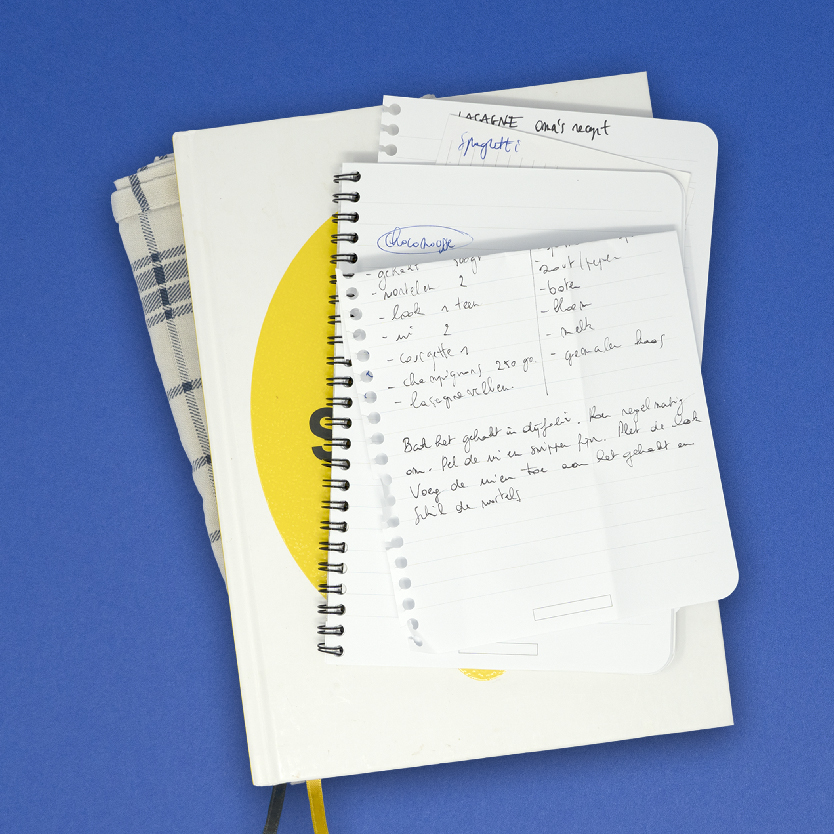 LASAGNE oma's recept
Spaghetti
Chocomousse
- gehakt
- wortelen 2
- look 1 teen
- ui 2
- courgette 1
- champignons 250 gr.
- lasagnevellen.
zout/peper
- boter
- bloem
- melk
- gemalen kaas
Bak het gehakt in olijfolie. Roer regelmatig
om. Pel de ui en snipper fijn. Plet de look
Voeg de ui en toe aan het gehakt en
Schil de wortels
S